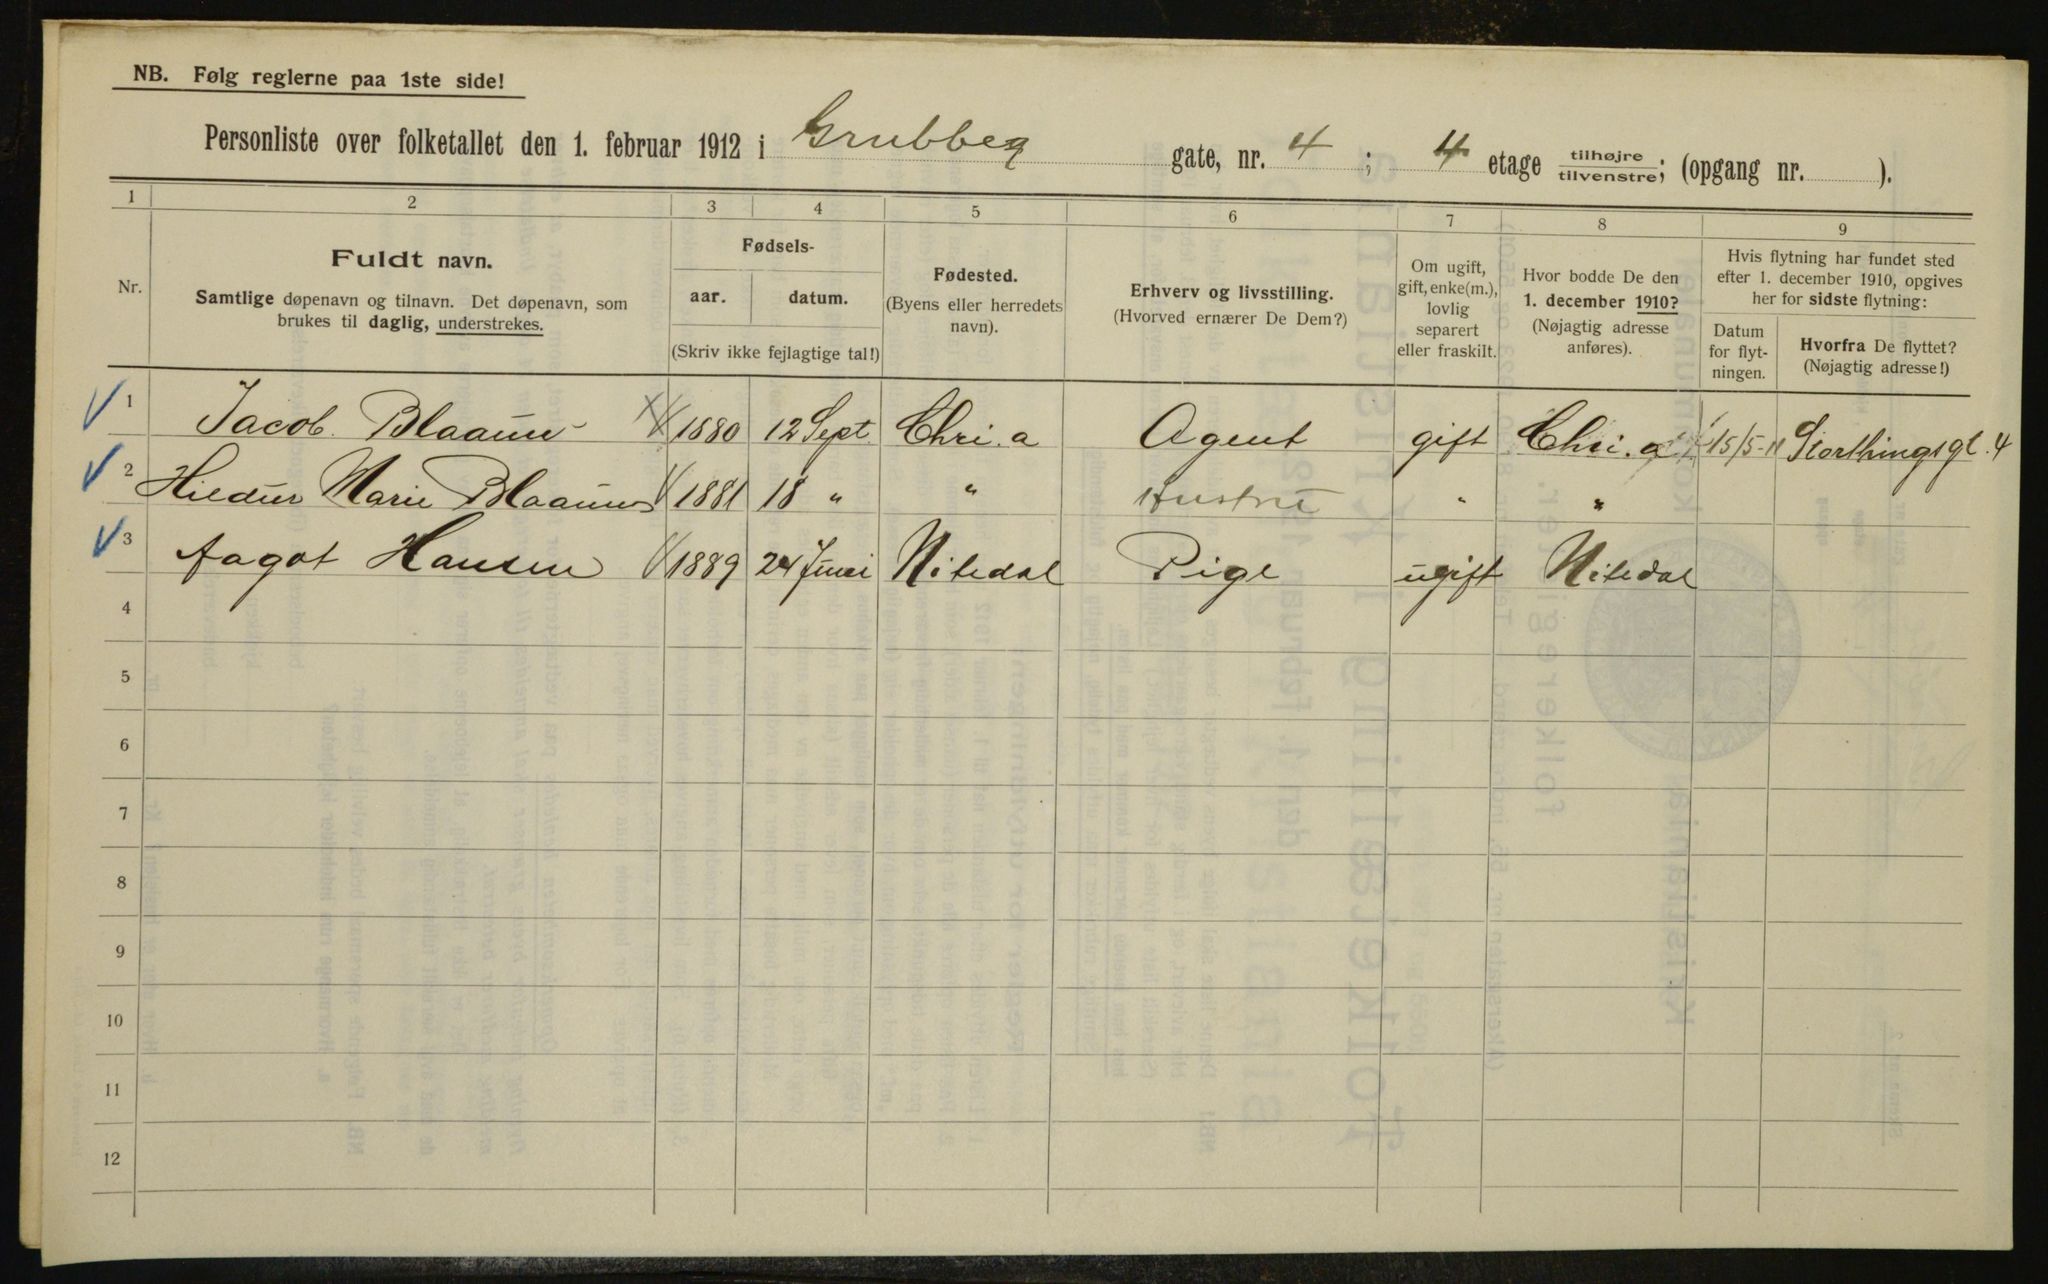 NB. Følg reglerne paa 1ste side!
Personliste over folketallet den 1. februar 1912 i Grubbeg gate, nr. 4 ; 4 etage tilhøjre tilvenstre; (opgang nr. ).
1 2 3 4 5 6 7 8 9
Nr.
Fuldt navn.
Samtlige døpenavn og tilnavn. Det døpenavn, som
brukes til daglig, understrekes.
Fødsels-
aar. datum.
(Skriv ikke fejlagtige tal!)
Fødested.
(Byens eller herredets
navn).
Erhverv og livsstilling.
(Hvorved ernærer De Dem?)
Om ugift,
gift, enke(m.),
lovlig
separert
eller fraskilt.
Hvor bodde De den
1. december 1910?
(Nøjagtig adresse
anføres).
Hvis flytning har fundet sted
efter 1. december 1910, opgives
her for sidste flytning:
Datum
for flyt-
ningen.
Hvorfra De flyttet?
(Nøjagtig adresse!)
1 Jacob Blaauw 1880 12 Sept. Chri.a Agent gift Chri.a 15/5-11 Storthingsgt. 4
2 Hildur Marie Blaauw 1881 18 " " Hustru " "
3 Aagot Hansen 1889 24 Juni Nitedal Pige ugift Nitedal
4
5
6
7
8
9
10
11
12